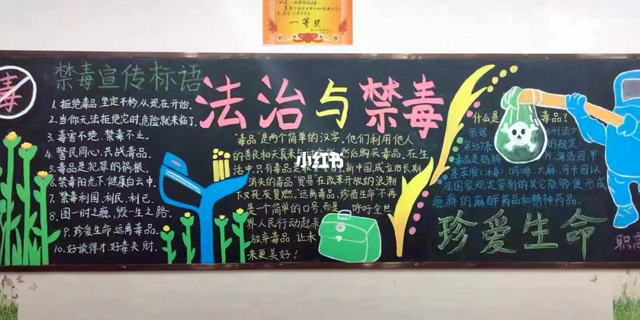 一等奖
毒
禁毒宣传标语
1.拒绝毒品,坚定不移,从现在开始.
2.当你无法拒绝它时,危险就来临了.
3.毒害不绝,禁毒不止.
4.警民同心,共战毒品.
5.毒品是犯罪的祸根.
6.禁毒阳光下,健康白云中.
7.禁毒利国、利民、利己.
8.图一时之瘾,毁一生之路.
9.珍爱生命远离毒品.
10.好读得才好毒失财.
法治与禁毒
"毒品"是两个简单的汉字,他们利用他人
小红书
生
中,只有毒品是
新中国成立后长期
消失的毒品贸易在改革开放的浪潮
又死灰复燃,远离毒品,珍爱生命不再
是一个简单的口号,而是
听听全世
界人民行动起来
放弃毒品 让未
来更美好!
什么是
毒品?
刑法
第357条
的规定,
毒品是指鸦片、海洛因、甲
基苯丙胺(冰毒)、吗啡、大麻、可卡因以
及国家规定管制的其它能够使人形成
瘾癖的麻醉药品和精神药品。
珍爱生命
职高